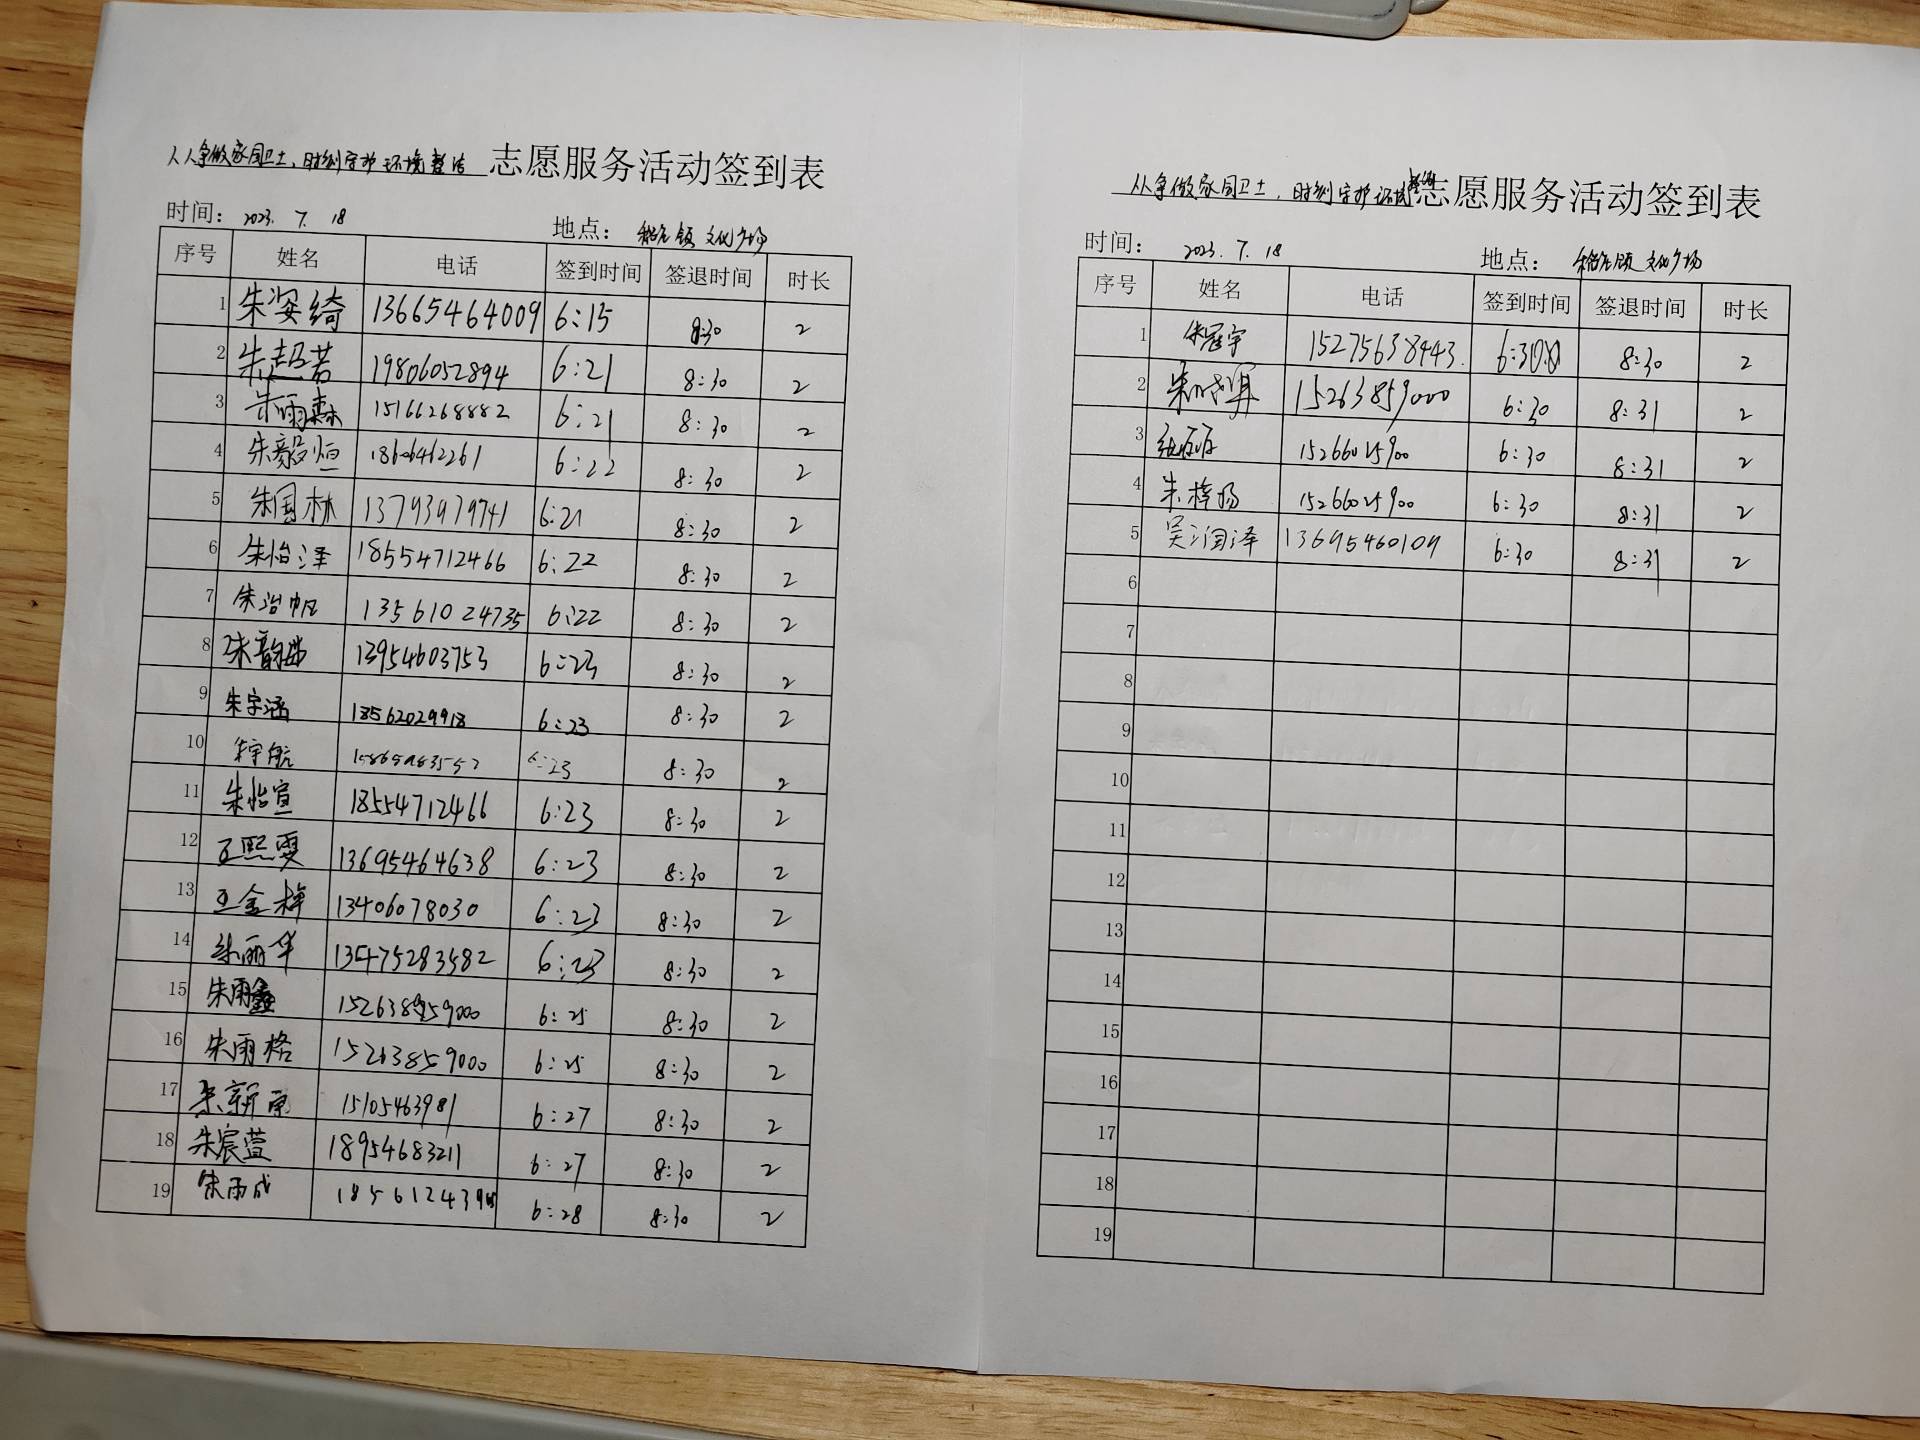 人人争做家园卫士，时刻守护环境整洁 志愿服务活动签到表
时间： 2023. 7. 18 地点： 稻庄镇 文化广场
序号 姓名 电话 签到时间 签退时间 时长
1 朱姿绮 13665464009 6:15 8:30 2
2 朱超若 19806052894 6:21 8:30 2
3 朱雨森 15166268882 6:21 8:30 2
4 朱毅恒 18606462261 6:22 8:30 2
5 朱国林 13793979741 6:21 8:30 2
6 朱怡泽 18554712466 6:22 8:30 2
7 朱治帆 13561024735 6:22 8:30 2
8 朱韵曲 13954603753 6:23 8:30 2
9 朱宇涵 18562029918 6:23 8:30 2
10 朱宇航 6:23 8:30 2
11 朱怡宣 18554712466 6:23 8:30 2
12 王熙雯 13695464638 6:23 8:30 2
13 王金梓 13406078030 6:23 8:30 2
14 朱丽华 13475283582 6:23 8:30 2
15 朱雨鑫 15263859000 6:25 8:30 2
16 朱雨格 15263859000 6:25 8:30 2
17 朱新雨 15105463981 6:27 8:30 2
18 朱宸萱 18954683211 6:27 8:30 2
19 朱雨成 6:28 8:30 2
人人争做家园卫士，时刻守护环境整洁 志愿服务活动签到表
时间： 2023. 7. 18 地点： 稻庄镇 文化广场
序号 姓名 电话 签到时间 签退时间 时长
1 朱冠宇 15275638443 6:30 8:30 2
2 15263859000 6:30 8:31 2
3 15266025900 6:30 8:31 2
4 朱梓扬 15266025900 6:30 8:31 2
5 吴润泽 13695460109 6:30 8:31 2
6
7
8
9
10
11
12
13
14
15
16
17
18
19